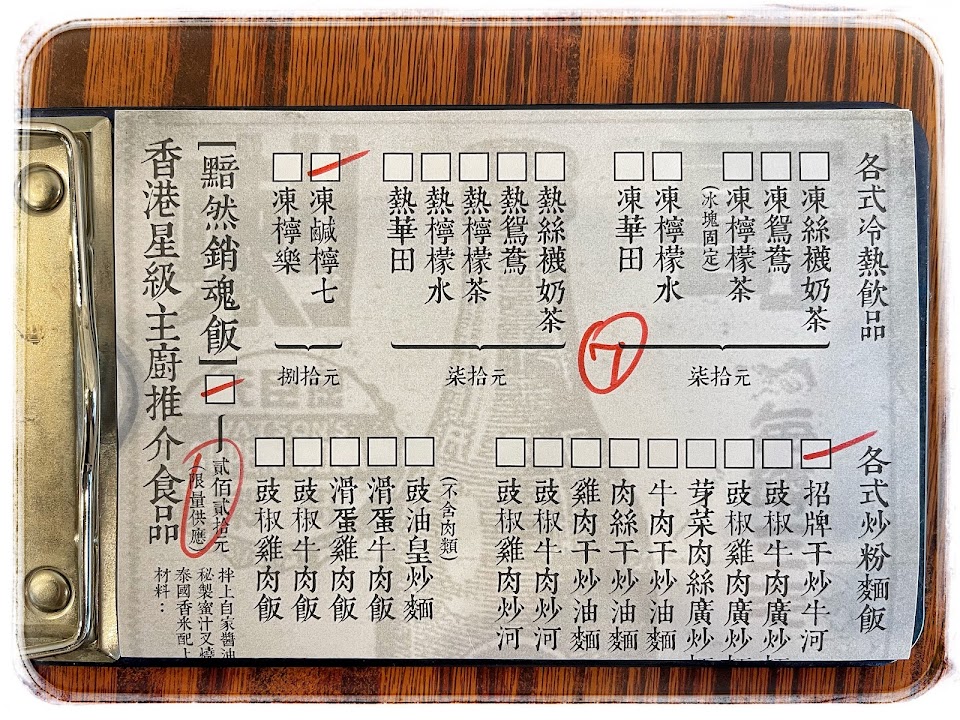 各式冷熱飲品
凍絲襪奶茶
凍鴛鴦
凍檸檬茶
(冰塊固定)
凍檸檬水
凍華田
柒拾元
7
熱絲襪奶茶
熱鴛鴦
熱檸檬茶
熱檸檬水
熱華田
柒拾元
凍鹹檸七
凍檸樂
捌拾元
各式炒粉麵飯
招牌干炒牛河
豉椒牛肉廣炒
豉椒雞肉廣炒
芽菜肉絲廣炒
牛肉干炒油麵
肉絲干炒油麵
雞肉干炒油麵
豉椒牛肉炒河
豉椒雞肉炒河
(不含肉類)
豉油皇炒麵
滑蛋牛肉飯
滑蛋雞肉飯
豉椒牛肉飯
豉椒雞肉飯
[黯然銷魂飯]
貳佰貳拾元
(限量供應)
香港星級主廚推介食品
拌上自家醬油
秘製蜜汁叉燒
泰國香米配上
材料：
WATSON'S